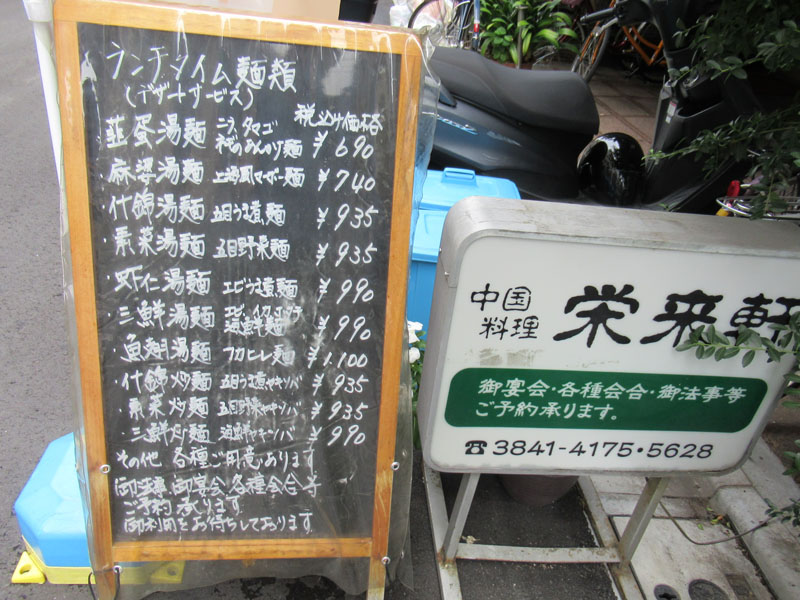 ランチタイム麺類
(デザートサービス)
税込み価格
韮蛋湯麺 ニラ、タマゴ
あんかけ麺 ¥690
麻婆湯麺 上海風マーボー麺 ¥740
什錦湯麺 五目うま煮麺 ¥935
・素菜湯麺 五目野菜麺 ¥935
・虾仁湯麺 エビうま煮麺 ¥990
・三鮮湯麺 エビ、イカ、ホタテ
海鮮麺 ¥990
魚翅湯麺 フカヒレ麺 ¥1,100
什錦炒麺 五目うま煮ヤキソバ ¥935
・素菜炒麺 五目野菜ヤキソバ ¥935
三鮮炒麺 海鮮ヤキソバ ¥990
その他 各種ご用意あります
御法事、御宴会、各種会合等
ご予約承ります
御利用をお待ちしております
中国
料理
栄来軒
御宴会・各種会合・御法事等
ご予約承ります。
☎3841-4175・5628